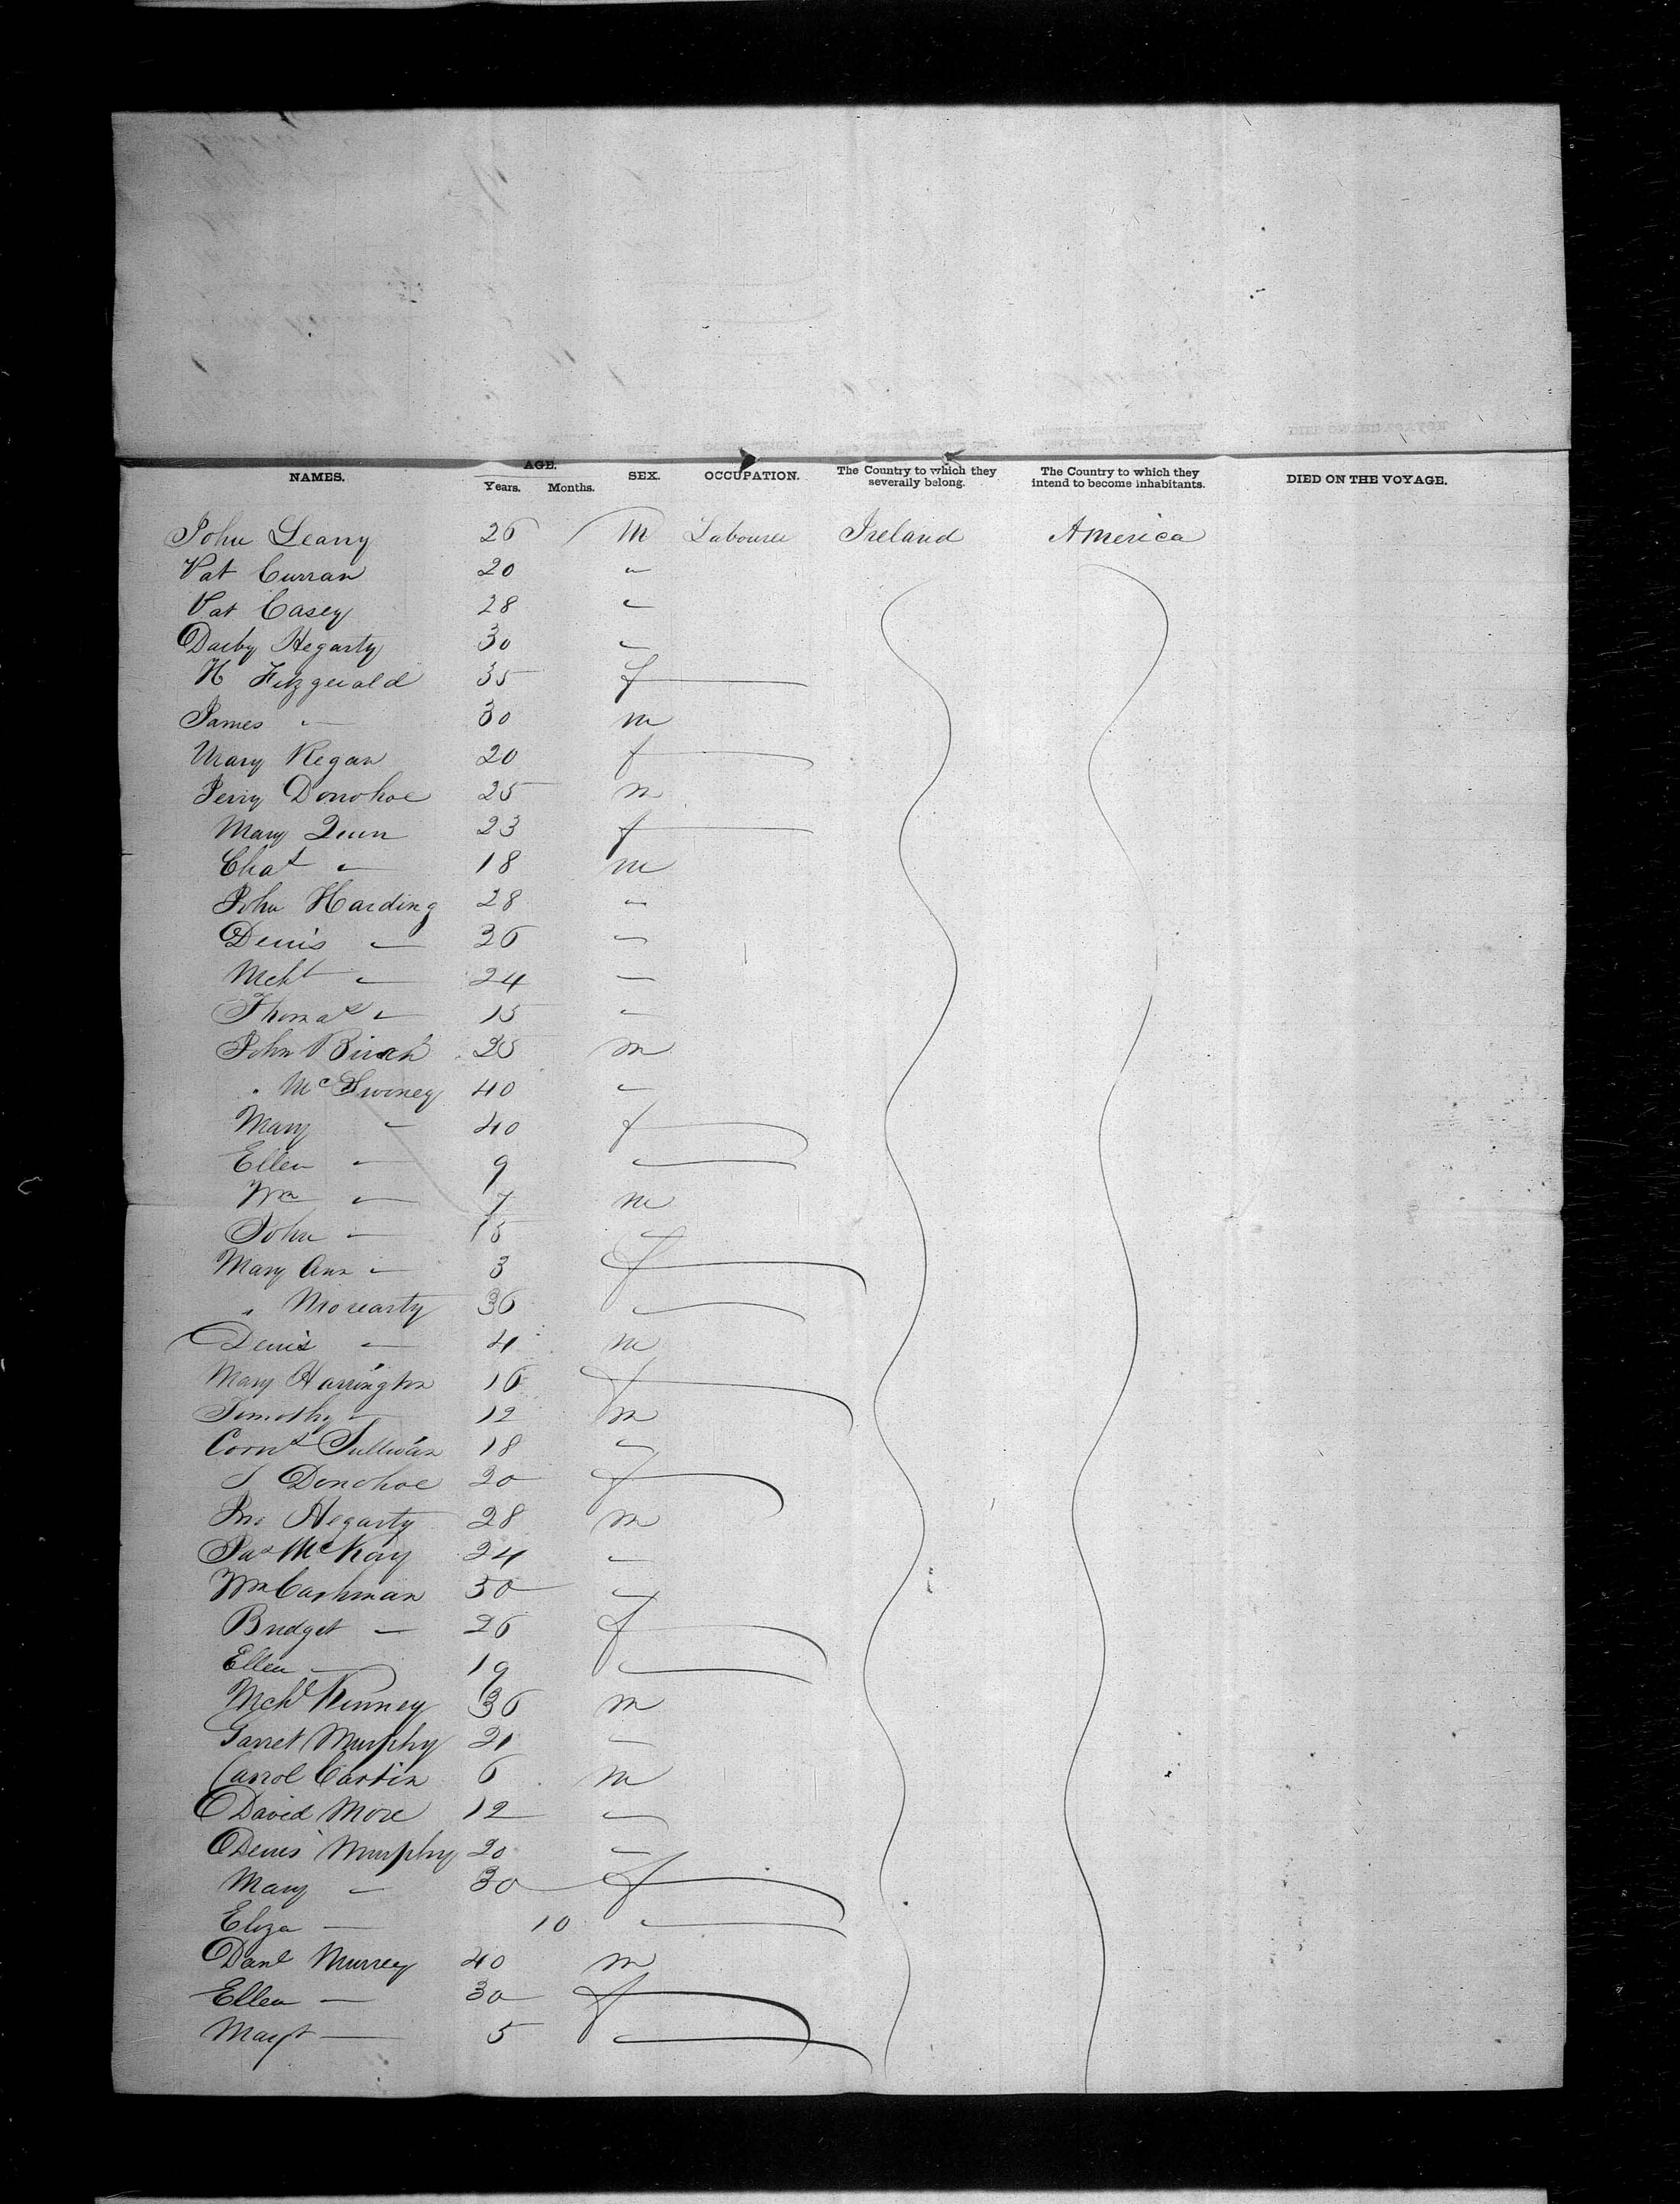 NAMES. AGE. SEX. OCCUPATION. The Country to which they severally belong. The Country to which they intend to become inhabitants. DIED ON THE VOYAGE.
Years. Months.
John Leary 26 M Labourer Ireland America
Pat Curran 20 "
Pat Casey 28 "
Darby Hegarty 30 "
H Fitzgerald 35 f
James " 30 m
Mary Regan 20 f
Jerry Donohoe 25 m
Mary Quin 23 f
Chas " 18 m
John Harding 28 "
Denis " 26 "
Mchl " 24 "
Thomas " 15 "
John Birch 25 m
" McSwiney 40 "
Mary " 40 f
Ellen " 9 "
Wm " 7 m
John " 15 "
Mary Ann " 3 f
" Moriarty 36 "
Denis " 4 m
Mary Harrington 16 f
Timothy " 12 m
Corns Sullivan 18 "
J Donohoe 20 f
Jno Hegarty 28 m
Jas McKay 24 "
Wm Cashman 50 "
Bridget " 26 f
Ellen " 19 "
Mchl Kinney 36 m
Garret Murphy 21 "
Carrol Castin 6 m
David More 12 "
Denis Murphy 20 "
Mary " 30 f
Eliza " 10 "
Danl Murrey 40 m
Ellen " 30 f
Magt " 5 "